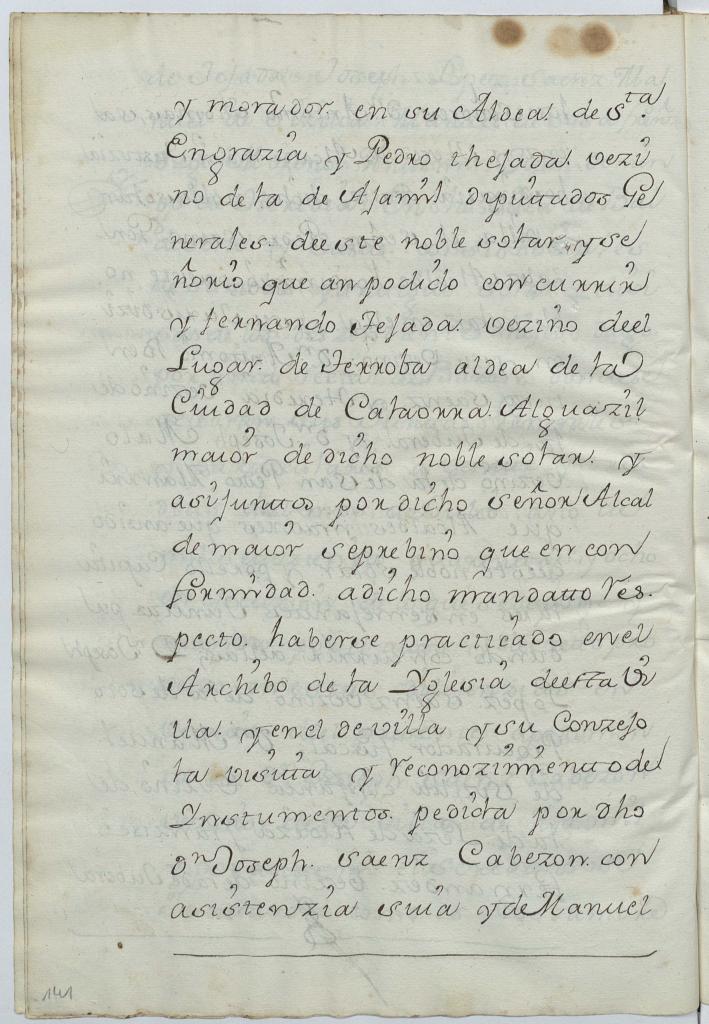 y morador en su Aldea de Sta.
Engrazia y Pedro thejada vezi
no de la de Ajamil diputtados Ge
nerales deeste noble solar, y se
ñorio que an podido concurrir
y fernando Tejada vezino deel
Lugar de Terroba aldea de la
Ciudad de Calaorra Alguazil
maior de dicho noble solar y
asi juntos por dicho señor Alcal
de maior se prebino que en con
formidad a dicho mandatto res-
pecto haberse practicado en el
Archibo de la Yglesia deesta Vi
lla y en el de villa y su Conzejo
la visita y reconozimiento de
Ynstumentos pedida por dho
Dn Joseph saenz Cabezon con
asistenzia suia y de Manuel
141